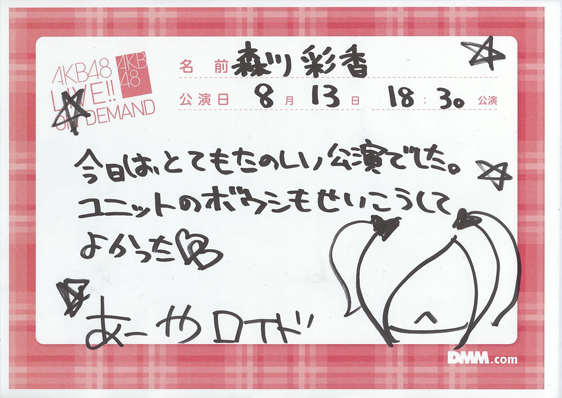 AKB48
LIVE!!
ON DEMAND
AKB
48
名前 森川彩香
公演日 8月13日 18:30公演
今日は、とてもたのしい公演でした。
ユニットのボウシもせいこうして
よかった
あーやロイド
DMM.com